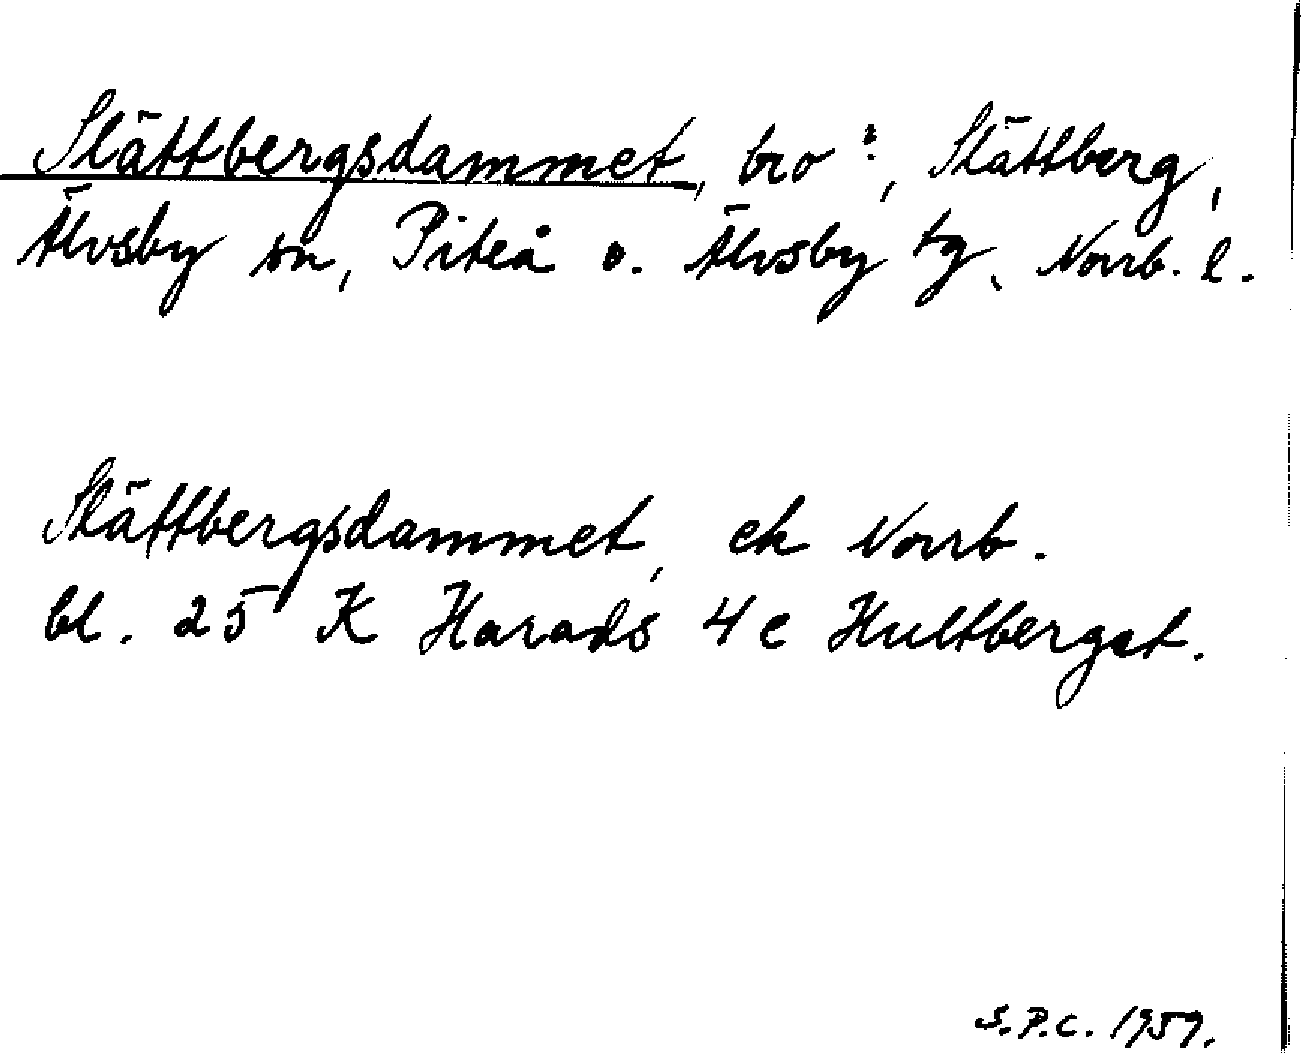 Slättbergsdammet, bro?, Slättberg,
Älvsby sn, Piteå o. Älvsby tg, Norrb. l.
Slättbergsdammet, ek Norrb.
bl. 25 K Harads 4 c Hultberget.
S.P.C. 1959.